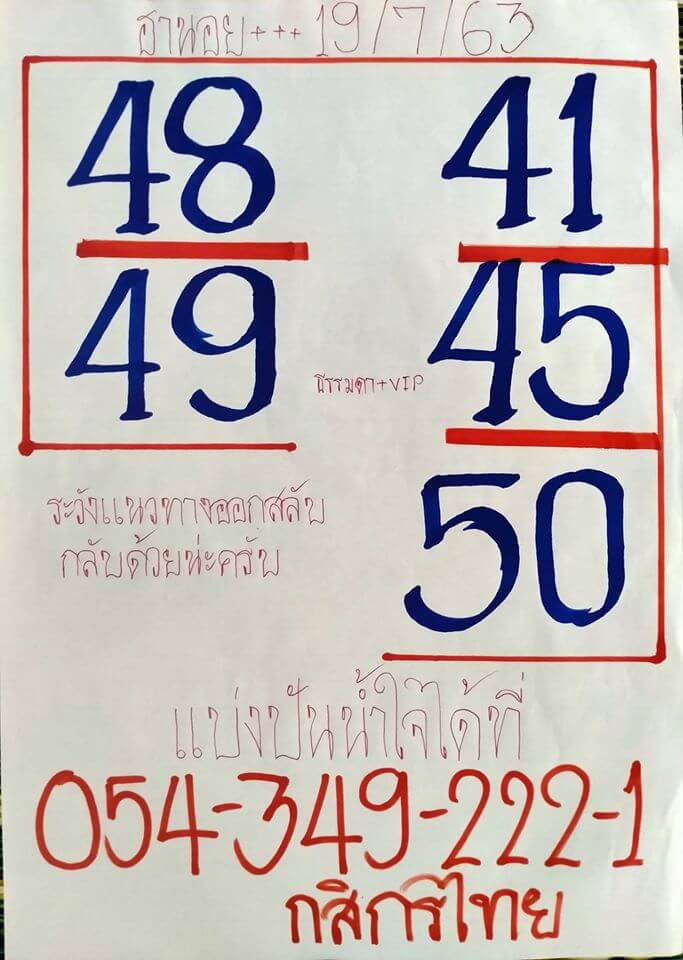 ฮานอย+++ 19/7/63
48 41
49 45
ธรรมดา+VIP
50
ระวังแนวทางออกสลับ
กลับด้วยน่ะครับ
แบ่งปันน้ำใจได้ที่
054-349-222-1
กสิกรไทย